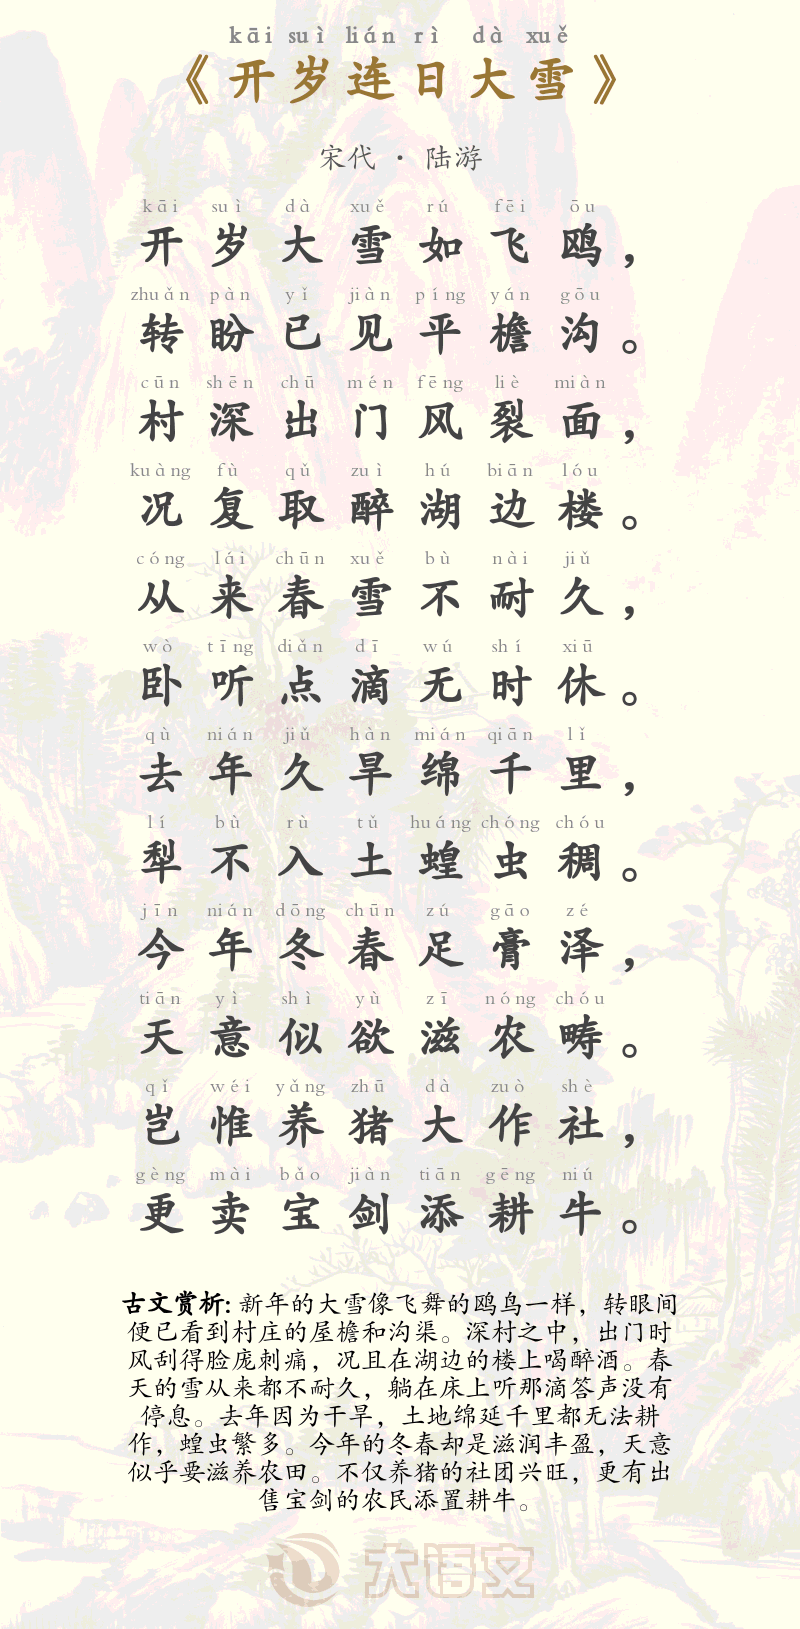 kāi suì lián rì dà xuě
《开岁连日大雪》
宋代 · 陆游
kāi suì dà xuě rú fēi ōu
开岁大雪如飞鸥，
zhuǎn pàn yǐ jiàn píng yán gōu
转盼已见平檐沟。
cūn shēn chū mén fēng liè miàn
村深出门风裂面，
kuàng fù qǔ zuì hú biān lóu
况复取醉湖边楼。
cóng lái chūn xuě bù nài jiǔ
从来春雪不耐久，
wò tīng diǎn dī wú shí xiū
卧听点滴无时休。
qù nián jiǔ hàn mián qiān lǐ
去年久旱绵千里，
lí bù rù tǔ huáng chóng chóu
犁不入土蝗虫稠。
jīn nián dōng chūn zú gāo zé
今年冬春足膏泽，
tiān yì shì yù zī nóng chóu
天意似欲滋农畴。
qǐ wéi yǎng zhū dà zuò shè
岂惟养猪大作社，
gèng mài bǎo jiàn tiān gēng niú
更卖宝剑添耕牛。
古文赏析: 新年的大雪像飞舞的鸥鸟一样，转眼间
便已看到村庄的屋檐和沟渠。深村之中，出门时
风刮得脸庞刺痛，况且在湖边的楼上喝醉酒。春
天的雪从来都不耐久，躺在床上听那滴答声没有
停息。去年因为干旱，土地绵延千里都无法耕
作，蝗虫繁多。今年的冬春却是滋润丰盈，天意
似乎要滋养农田。不仅养猪的社团兴旺，更有出
售宝剑的农民添置耕牛。
大语文